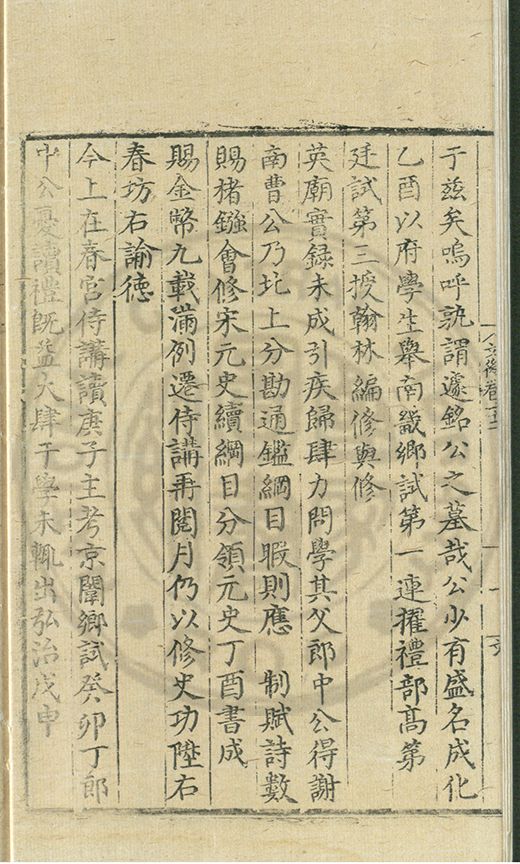 于茲矣嗚呼孰謂遽銘公之墓哉公少有盛名成化
乙酉以府學生舉南畿鄉試第一連擢禮部高第
廷試第三授翰林編修與修
英廟實録未成引疾歸肆力問學其父郎中公得謝
南曹公乃北上分勘通鑑綱目暇則應 制賦詩數
賜楮鏹會修宋元史續綱目分領元史丁酉書成
賜金幣九載滿例遷侍講再閱月仍以修史功陞右
春坊右諭德
今上在春宮侍講讀庚子主考京闈鄉試癸卯丁郎
中公憂讀禮既益大肆于學未輒出弘治戊申